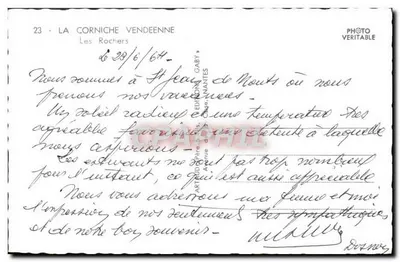 23 - LA CORNICHE VENDÉENNE
Les Rochers
PHOTO
VERITABLE
Le 28/6/64
Nous sommes à St Jean de Monts où nous
passons nos vacances.
Un soleil radieux et une température très
agréable, détente à laquelle
nous aspirions.
Les estivants ne sont pas trop nombreux
pour l'instant, ce qui est aussi appréciable
Nous vous adressons ma femme et moi
l'expression de nos sentiments très sympathiques
et de notre bon souvenir.
NANTES